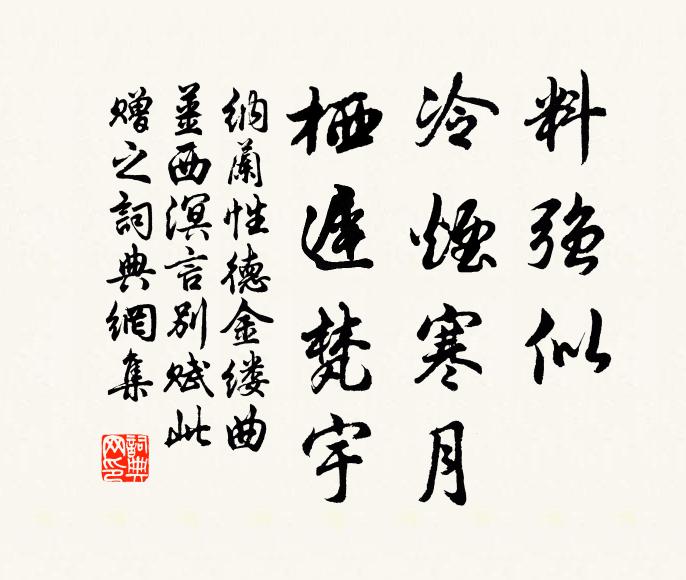 料強似
冷煙寒月
栖遲梵宇
納蘭性德金縷曲
薑西溟言別賦此
贈之詞典網集
詞典
网印